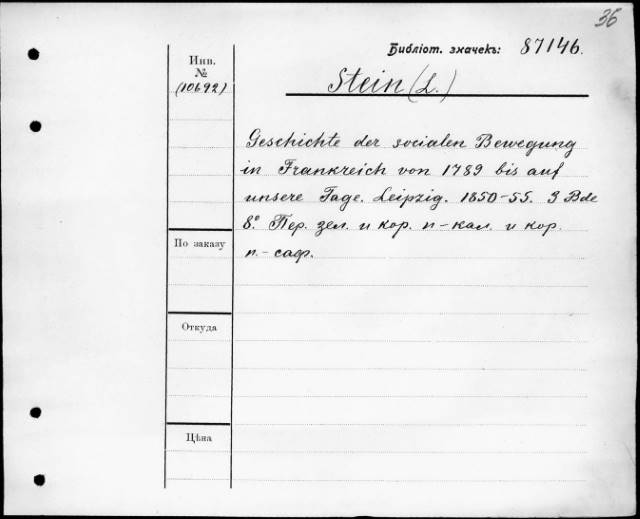 36
Библіот. значекъ: 87146.
Инв.
№
(10692)
Stein (L.)
Geschichte der socialen Bewegung
in Frankreich von 1789 bis auf
unsere Tage. Leipzig. 1850-55. 3 Bde
8° Пер. зел. и кор. п-кал. и кор.
п.- саф.
По заказу
Откуда
Цѣна